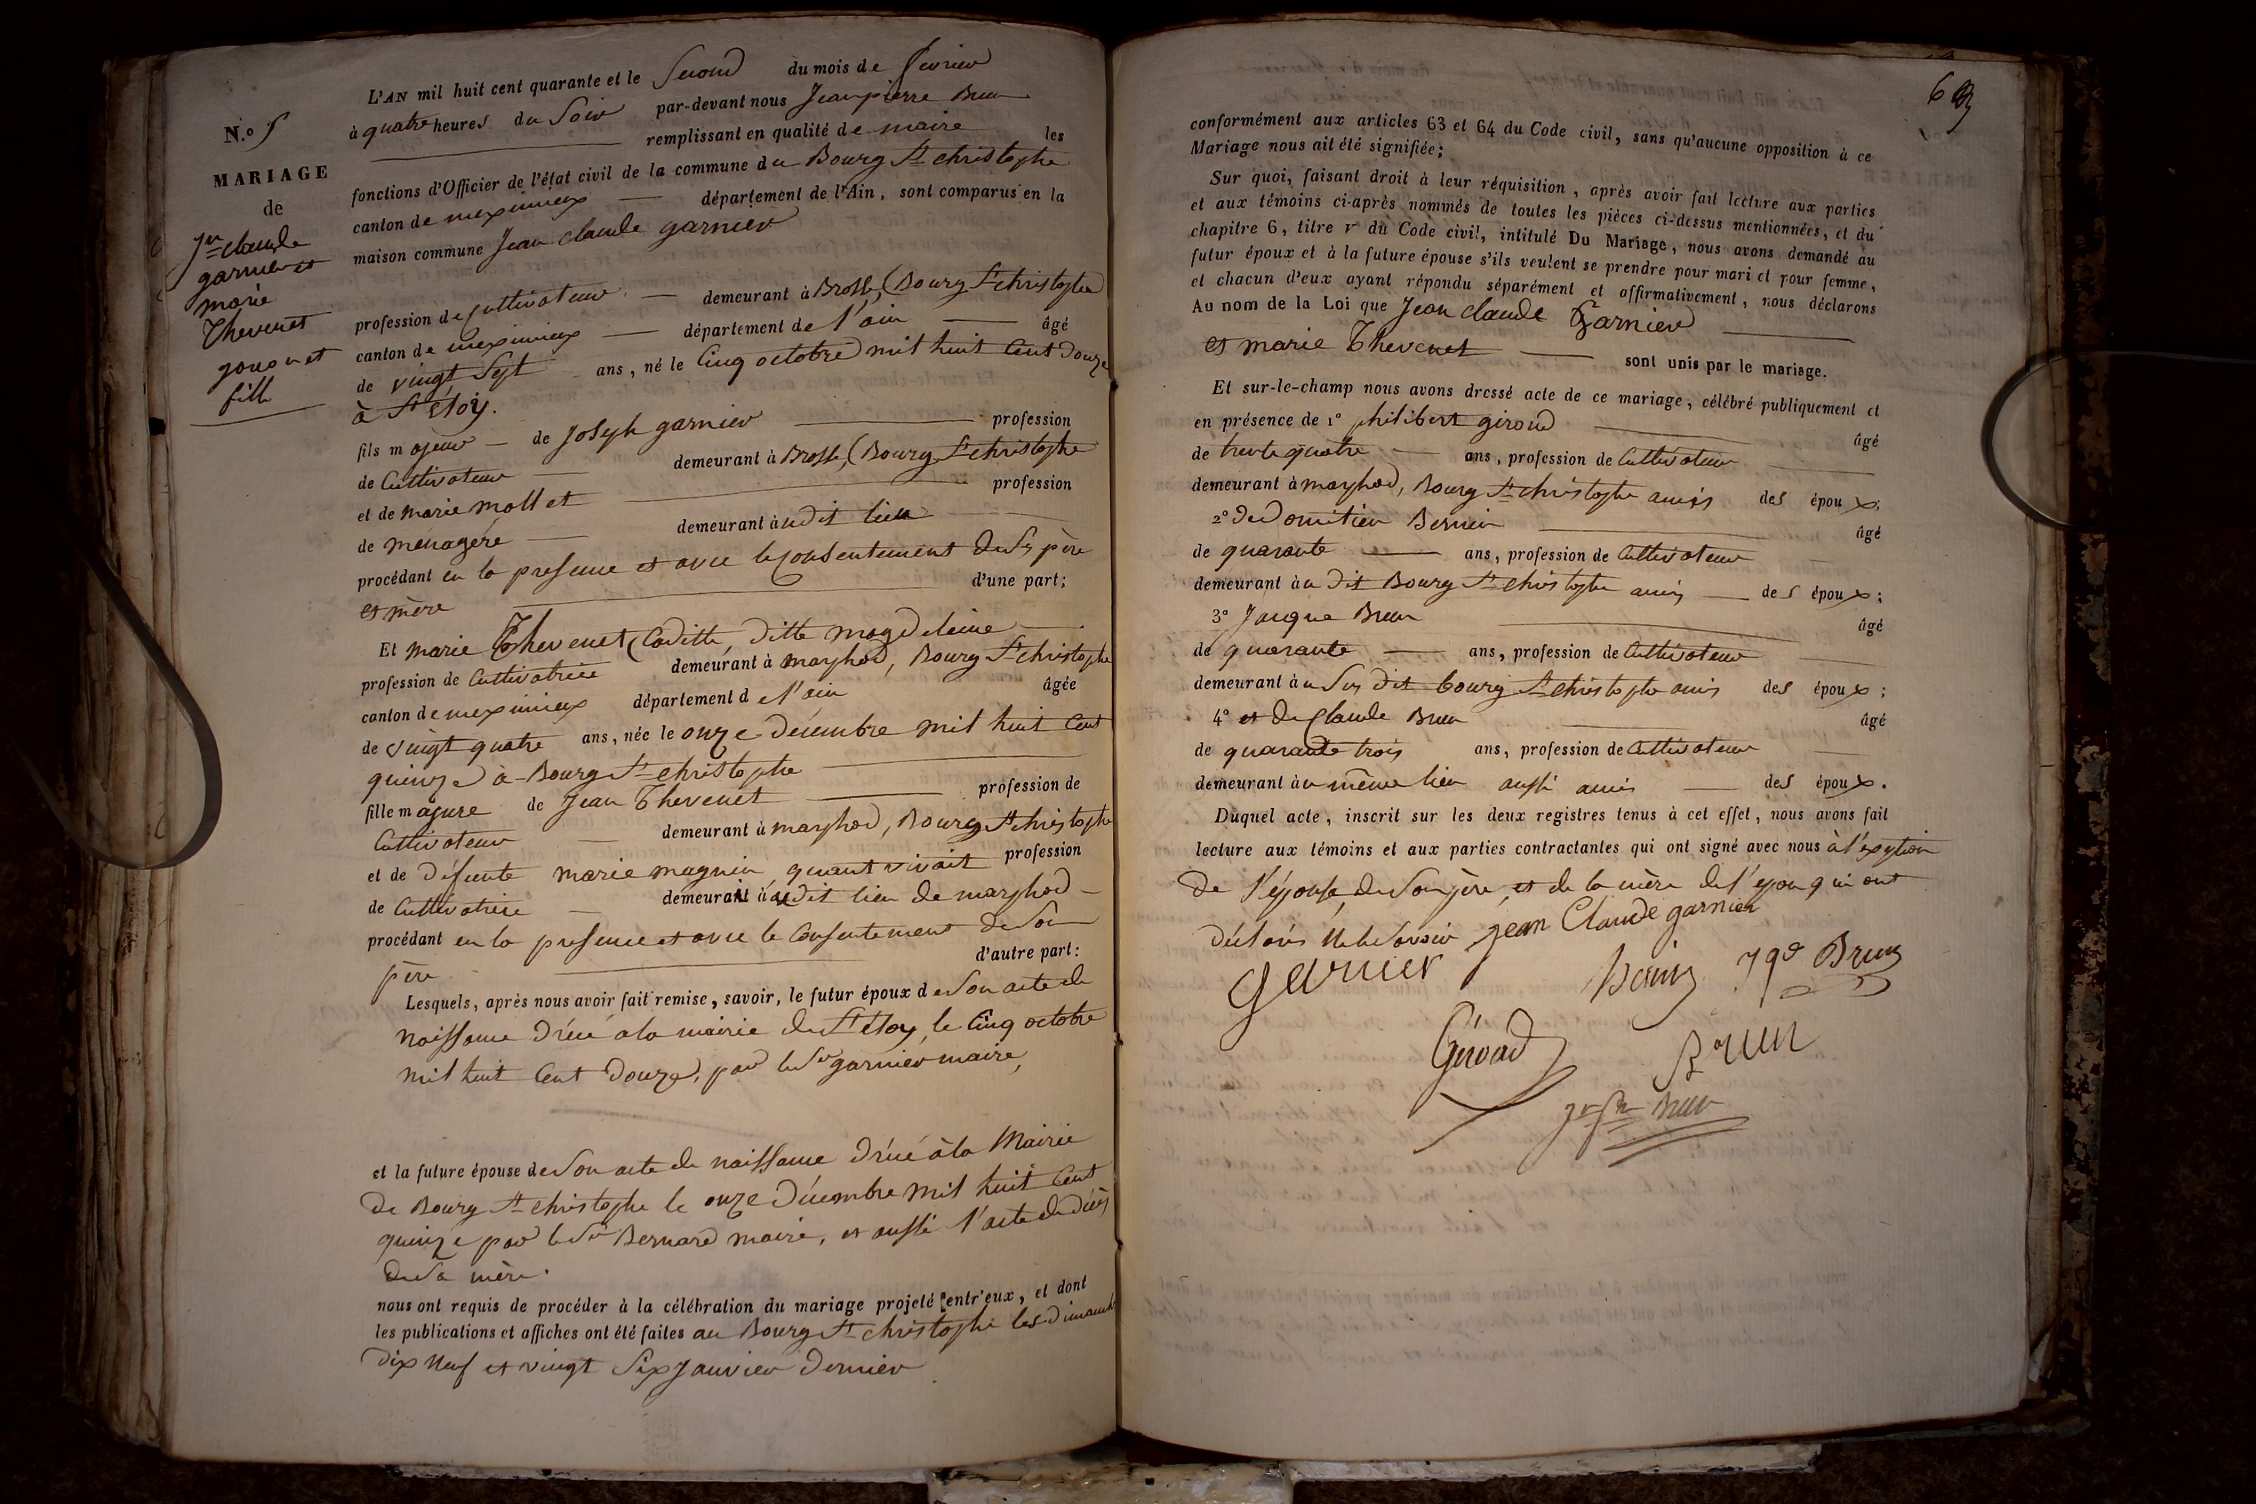 N.o 5
MARIAGE
de
Jn claude
garnier et
marie
Thevenet
garçon et
fille
L'AN mil huit cent quarante et le Second du mois de février
à quatre heures du Soir par-devant nous Jeanpierre Brun
remplissant en qualité de maire les
fonctions d'Officier de l'état civil de la commune du Bourg St christophe
canton de meximieux département de l'Ain, sont comparus en la
maison commune Jean claude garnier
profession de cultivateur demeurant à Brosse, (Bourg St christophe
canton de meximieux département de l'ain âgé
de vingt Sept ans, né le Cinq octobre mil huit Cent douze
à St éloy.
fils majeur de Joseph garnier profession
de Cultivateur demeurant à Brosse, (Bourg St christophe
et de marie mollet profession
de menagere demeurant audit lieu
procédant en la presence et avec le consentement de Ses père
et mère d'une part;
Et marie Thevenet (Caditte, ditte magdeleine
profession de Cultivatrice demeurant à marfhod, Bourg St christophe
canton de meximieux département de l'ain âgée
de vingt quatre ans, née le onze décembre mil huit Cent
quinze à Bourg St christophe
fille majure de Jean Thevenet profession de
Cultivateur demeurant à marfhod, Bourg St christophe
et de défunte marie magnin, quant vivait profession
de Cultivatrice demeurait audit lieu de marfhod
procédant en la presence et avec le Consentement de Son
père d'autre part:
Lesquels, après nous avoir fait remise, savoir, le futur époux de Son acte de
naissance drécé à la mairie de St éloy, le Cinq octobre
mil huit Cent douze, par le Sr garnier maire,
et la future épouse de Son acte de naissance drécé à la Mairie
de Bourg St christophe le onze décembre mil huit Cent
quinze par le Sr Bernard maire, et aussi l'acte de décès
de Sa mère.
nous ont requis de procéder à la célébration du mariage projeté entr'eux, et dont
les publications et affiches ont été faites au Bourg St christophe les dimanche
dix neuf et vingt Six Janvier dernier
conformément aux articles 63 et 64 du Code civil, sans qu'aucune opposition à ce
Mariage nous ait été signifiée;
Sur quoi, faisant droit à leur réquisition, après avoir fait lecture aux parties
et aux témoins ci-après nommés de toutes les pièces ci-dessus mentionnées, et du
chapitre 6, titre v du Code civil, intitulé Du Mariage, nous avons demandé au
futur époux et à la future épouse s'ils veulent se prendre pour mari et pour femme,
et chacun d'eux ayant répondu séparément et affirmativement, nous déclarons
Au nom de la Loi que Jean claude Garnier
et marie Thevenet sont unis par le mariage.
Et sur-le-champ nous avons dressé acte de ce mariage, célébré publiquement et
en présence de 1° philibert giroud âgé
de trente quatre ans, profession de Cultivateur
demeurant à marfhod, Bourg St christophe amis des époux;
2° de domitien Bernin âgé
de quarante ans, profession de Cultivateur
demeurant au dit Bourg St christophe amis des époux;
3° Jacque Brun âgé
de quarante ans, profession de Cultivateur
demeurant au Sus dit bourg St christophe amis des époux;
4° et de Claude Brun âgé
de quarante trois ans, profession de Cultivateur
demeurant au même lieu aussi amis des époux.
Duquel acte, inscrit sur les deux registres tenus à cet effet, nous avons fait
lecture aux témoins et aux parties contractantes qui ont signé avec nous à l'exeption
de l'épouse, de Son père, et de la mère de l'epoux qui ont
déclarés ne le Savoir jean Claude garnier
garnier
Jqe Brun
Giroud
Brun
Jn pre Brun